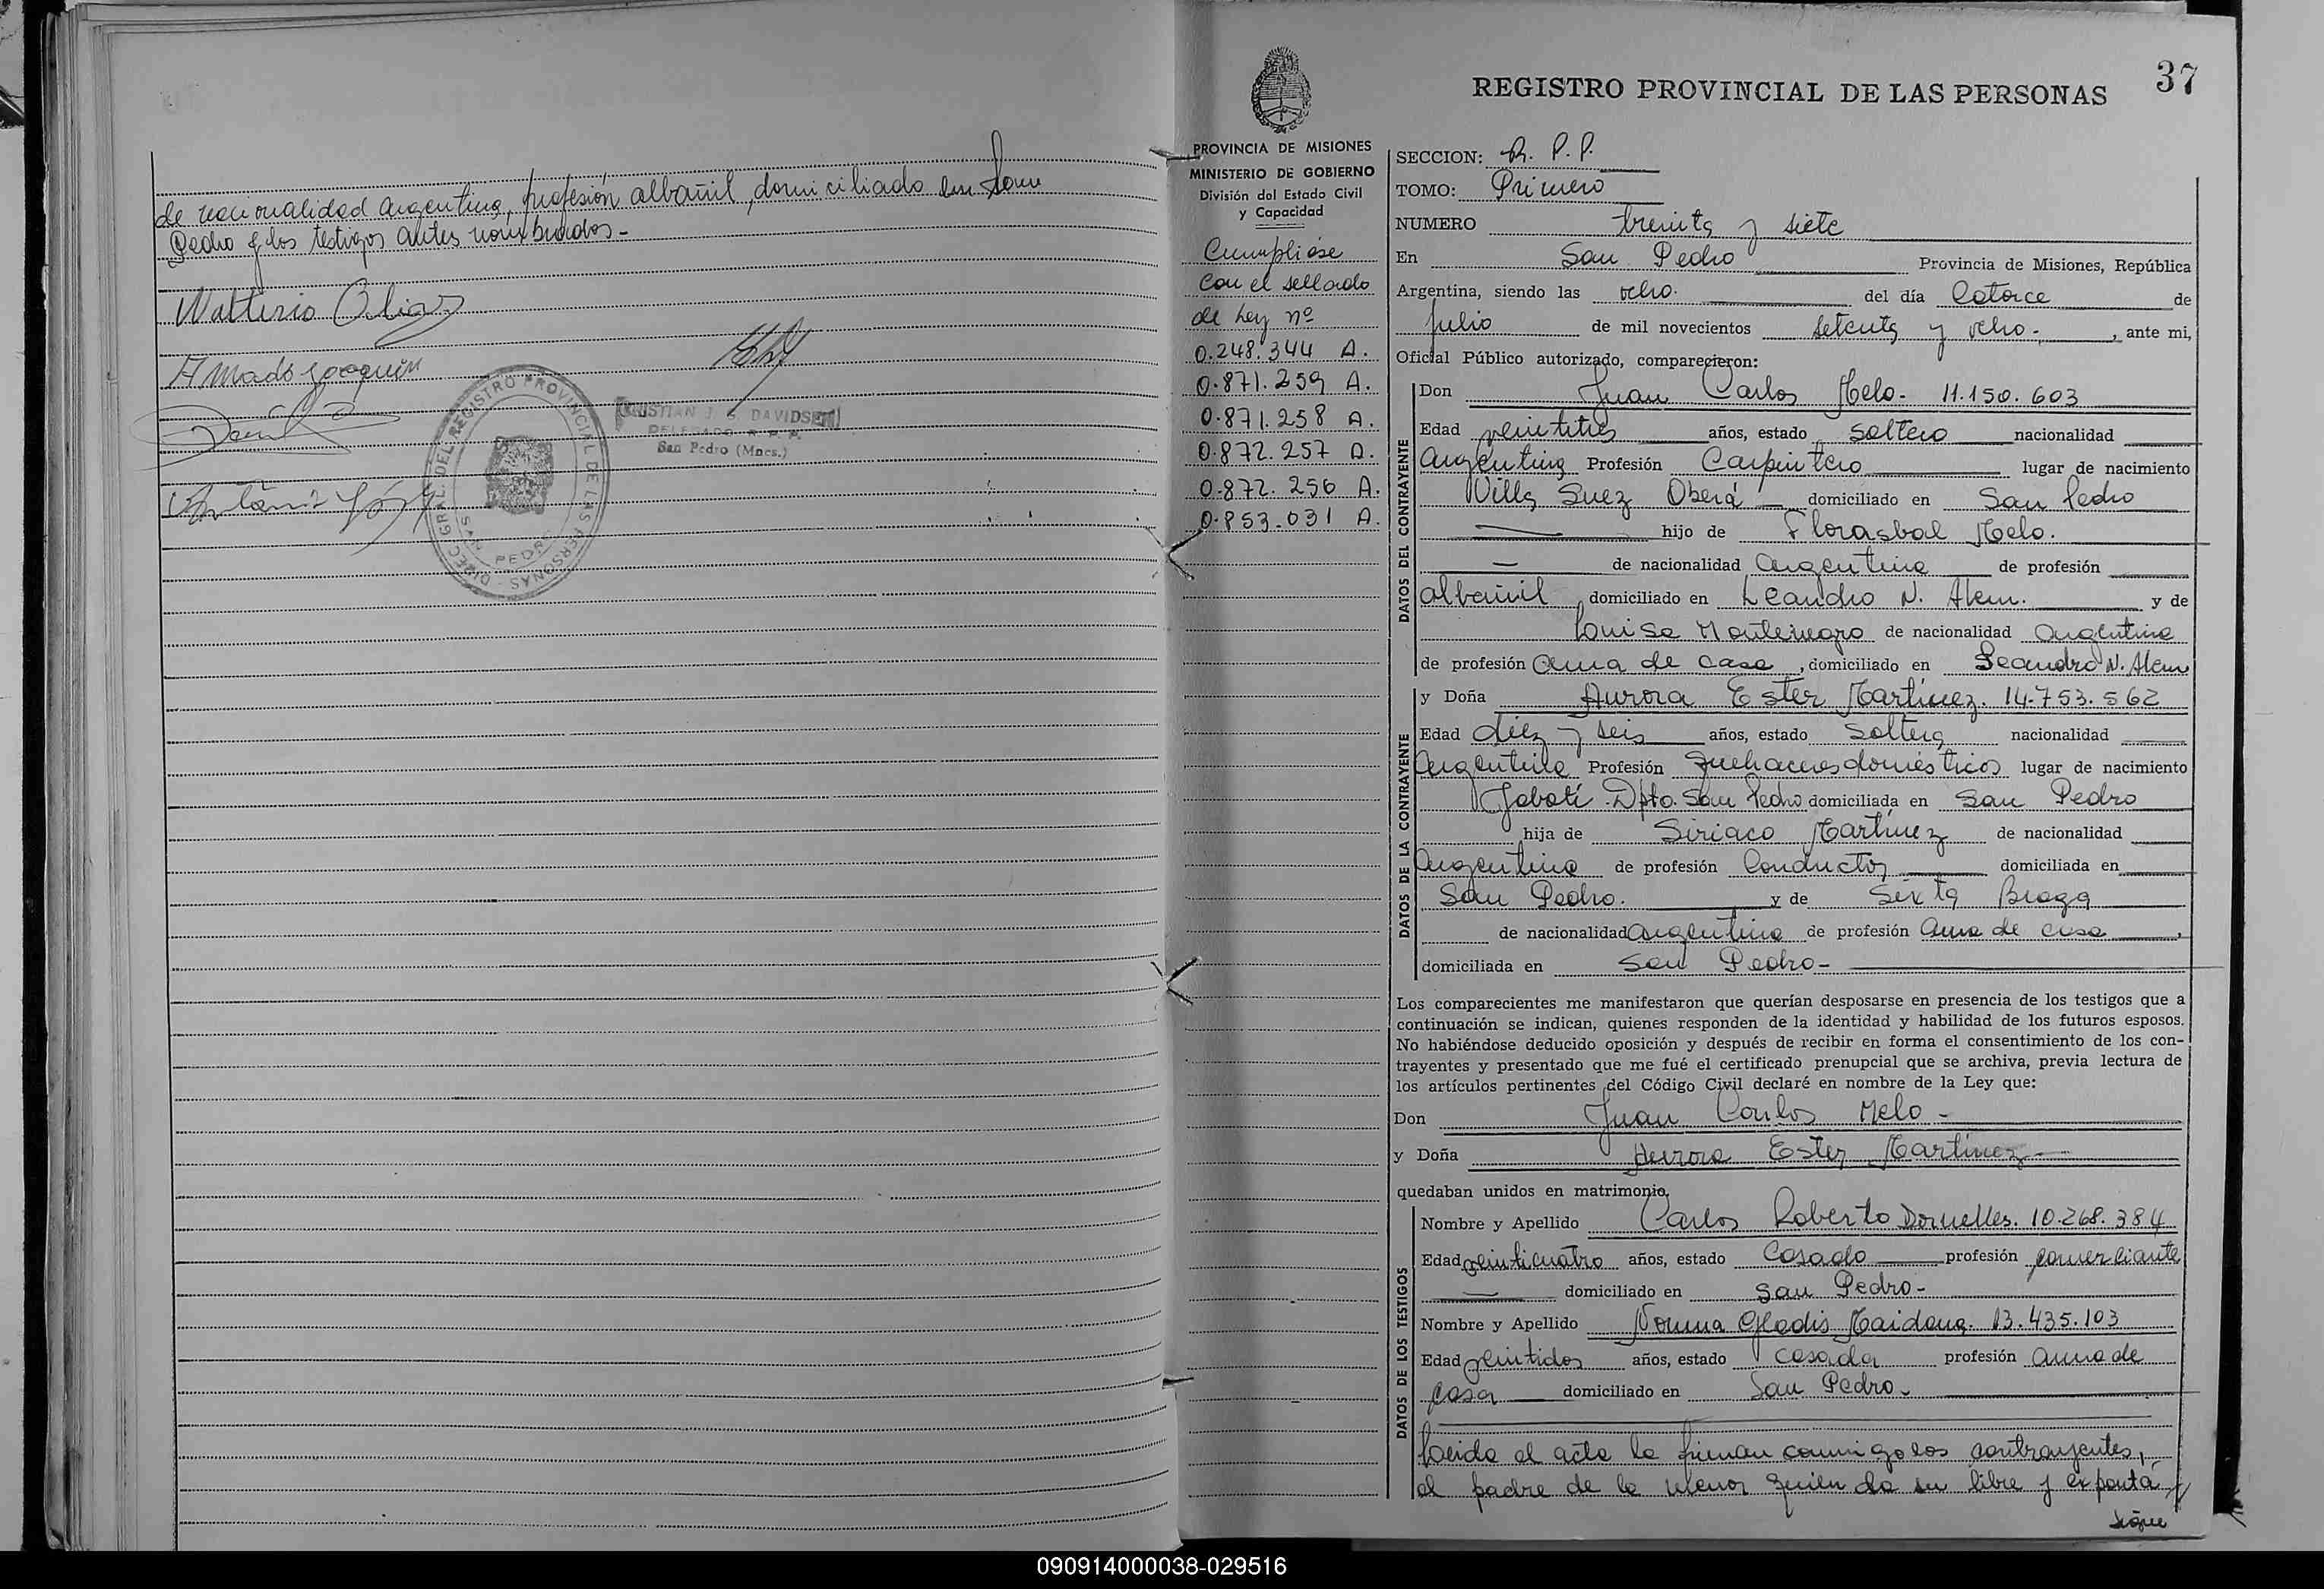 de nacionalidad argentina, profesión albañil, domiciliado en San
Pedro y los testigos antes nombrados-
Amado Joaquín
DIREC. GRAL. DEL REGISTRO PROVINCIAL DE LAS PERSONAS - SAN PEDRO
CRISTIAN J. S. DAVIDSEN
DELEGADO R. P. P.
San Pedro (Mnes.)
37
REGISTRO PROVINCIAL DE LAS PERSONAS
PROVINCIA DE MISIONES
MINISTERIO DE GOBIERNO
División del Estado Civil
y Capacidad
Cumplióse
con el sellado
de Ley nº
0.248.344 A.
0.871.259 A.
0.871.258 A.
0.872.257 A.
0.872.256 A.
0.853.031 A.
SECCION: R. P. P.
TOMO: Primero
NUMERO treinta y siete
En San Pedro Provincia de Misiones, República
Argentina, siendo las ocho. del día Catorce de
Julio de mil novecientos setenta y ocho-, ante mi,
Oficial Público autorizado, comparecieron:
DATOS DEL CONTRAYENTE
Don Juan Carlos Melo- 11.150.603
Edad veintitrés años, estado soltero nacionalidad
argentina Profesión Carpintero lugar de nacimiento
Villa Suez Oberá domiciliado en San Pedro
hijo de Florasbal Melo.
de nacionalidad argentina de profesión
albañil domiciliado en Leandro N. Alem. y de
Louisa Montenegro de nacionalidad argentina
de profesión ama de casa, domiciliado en Leandro N. Alem
DATOS DE LA CONTRAYENTE
y Doña Aurora Ester Martínez. 14.753.562
Edad diez y seis años, estado Soltera nacionalidad
argentina Profesión Quehaceres domésticos lugar de nacimiento
Yabotí. Dpto. San Pedro domiciliada en San Pedro
hija de Siriaco Martínez de nacionalidad
argentina de profesión Conductor domiciliada en
San Pedro. y de Sixta Braga
de nacionalidad argentina de profesión ama de casa,
domiciliada en San Pedro-
Los comparecientes me manifestaron que querían desposarse en presencia de los testigos que a
continuación se indican, quienes responden de la identidad y habilidad de los futuros esposos.
No habiéndose deducido oposición y después de recibir en forma el consentimiento de los con-
trayentes y presentado que me fué el certificado prenupcial que se archiva, previa lectura de
los artículos pertinentes del Código Civil declaré en nombre de la Ley que:
Don Juan Carlos Melo-
y Doña Aurora Ester Martínez-
quedaban unidos en matrimonio.
DATOS DE LOS TESTIGOS
Nombre y Apellido Carlos Roberto Dornelles. 10.268.384
Edad veinticuatro años, estado Casado profesión comerciante
domiciliado en San Pedro-
Nombre y Apellido Norma Gladis Maidana. 13.435.103
Edad veintidos años, estado casada profesión ama de
casa domiciliado en San Pedro-
Leida el acta la firman conmigo los contrayentes,
el padre de la menor quien da su libre y expontá
sigue
090914000038-029516